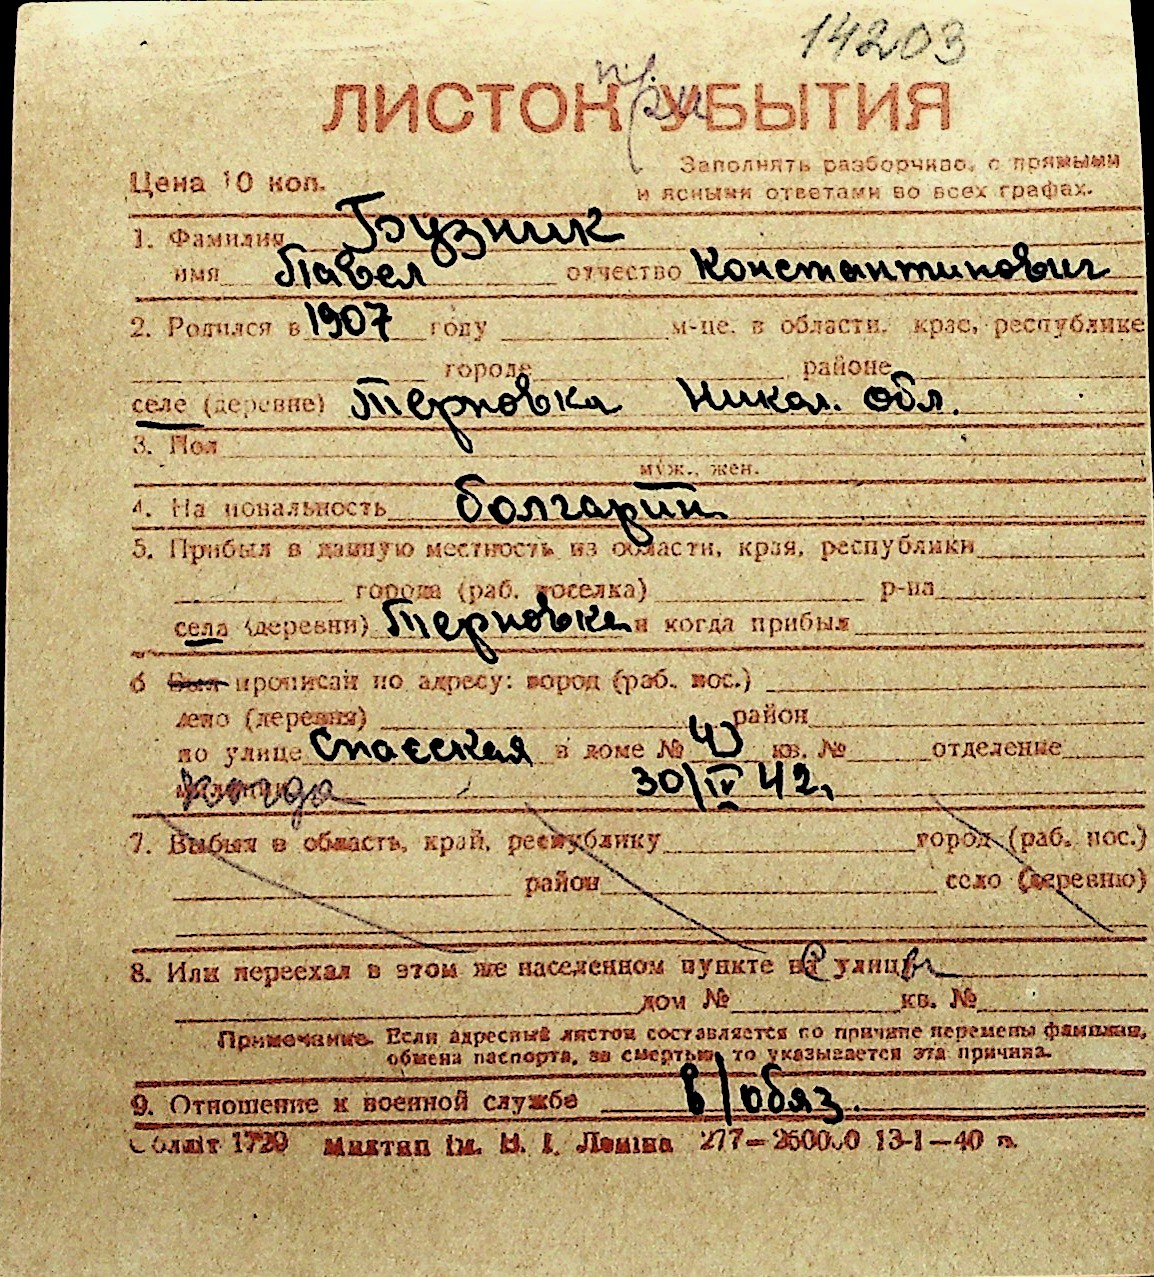 14203
ЛИСТОК УБЫТИЯ
Цена 10 коп.
Заполнять разборчиво, с прямыми
и ясными ответами во всех графах.
1. Фамилия Грузник
имя Павел отчество Константинович
2. Родился в 1907 году м-це, в области, крае, республике
городе районе
селе (деревне) Терновка Никол. обл.
3. Пол
муж., жен.
4. Национальность болгарин
5. Прибыл в данную местность из области, края, республики
города (раб. поселка) р-на
села (деревни) Терновка и когда прибыл
6 Был прописан по адресу: город (раб. пос.)
село (деревня) район
по улице Спасская в доме № кв. № отделение
когда 30/IV 42,
7. Выбыл в область, край, республику город (раб. пос.)
район село (деревню)
8. Или переехал в этом же населенном пункте на улицу
дом № кв. №
Примечание. Если адресный листок составляется по причине перемены фамилии,
обмена паспорта, за смертью, то указывается эта причина.
9. Отношение к военной службе в/обяз.
Обллiт 1720 Миктип iм. В. I. Ленiна 277—250000 13-1—40 р.